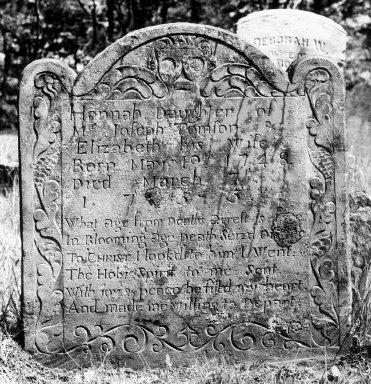 DEBORAH W.
WIFE OF
Hannah Daughter of
Mr Joseph &
Elizabeth his Wife
Born May 19 174
Died March
1 7
What age from Deaths arrest is
In Blooming age Death seiz'd
To CHRIST I looked to him I Went
The Holy Spirit to me Sent
With joy & peace he fill'd my heart
And made me willing to Depart